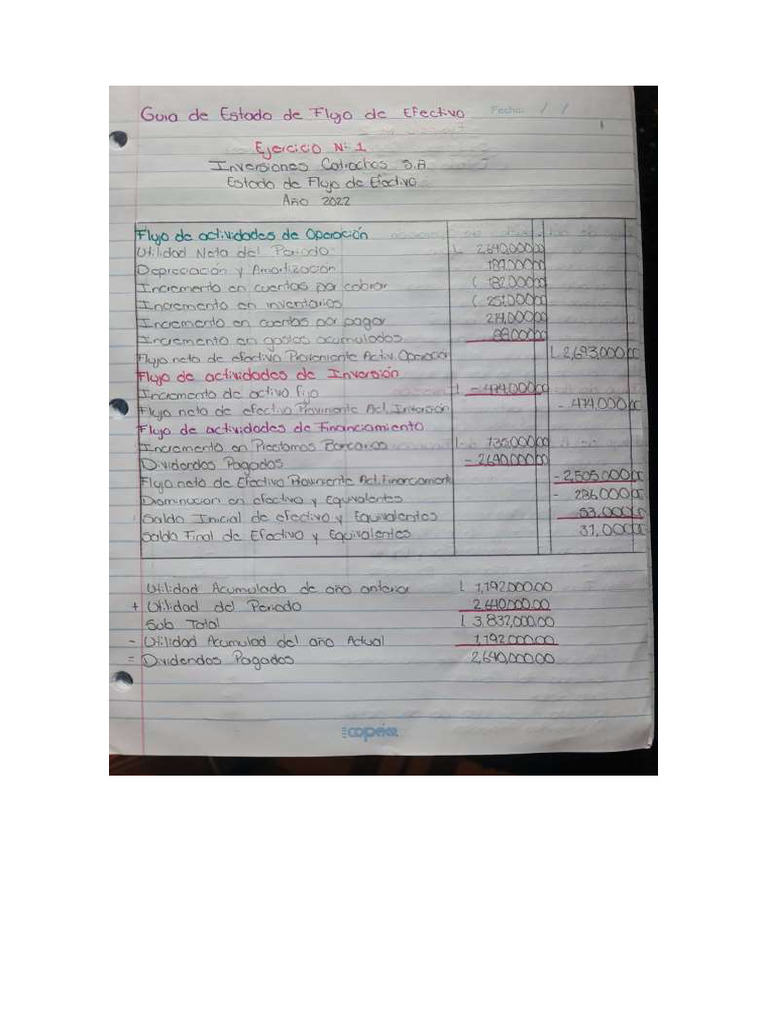 Guia de Estado de Flujo de Efectivo Fecha: / /
Ejercicio N: 1
Inversiones Catrachos S.A
Estado de Flujo de Efectivo
Año 2022
Flujo de actividades de Operación
Utilidad Neta del Periodo L 2,640,000.00
Depreciación y Amortización
Incremento en cuentas por cobrar ( 182,000.00
Incremento en inventarios
Incremento en cuentas por pagar
Incremento en gastos acumulados
Flujo neto de efectivo Proveniente Activ. Operación L 2,693,000.00
Flujo de actividades de Inversión
Incremento de activo fijo L - 474,000.00
Flujo neto de efectivo Act. Inversión - 474,000.00
Flujo de actividades de Financiamiento
Incremento en Prestamos Bancarios 135,000.00
Dividendos Pagados - 2,640,000.00
Flujo neto de Efectivo Act. - 2,505,000.00
Disminucion en efectivo y Equivalentes - 286,000.00
Saldo Inicial de efectivo y Equivalentes
Saldo Final de Efectivo y Equivalentes 31,000.00
Utilidad Acumulado de año anterior L 1,192,000.00
+ Utilidad del Periodo 2,640,000.00
Sub Total L 3,832,000.00
- Utilidad Acumulad del año Actual 1,192,000.00
= Dividendos Pagados 2,640,000.00
copán